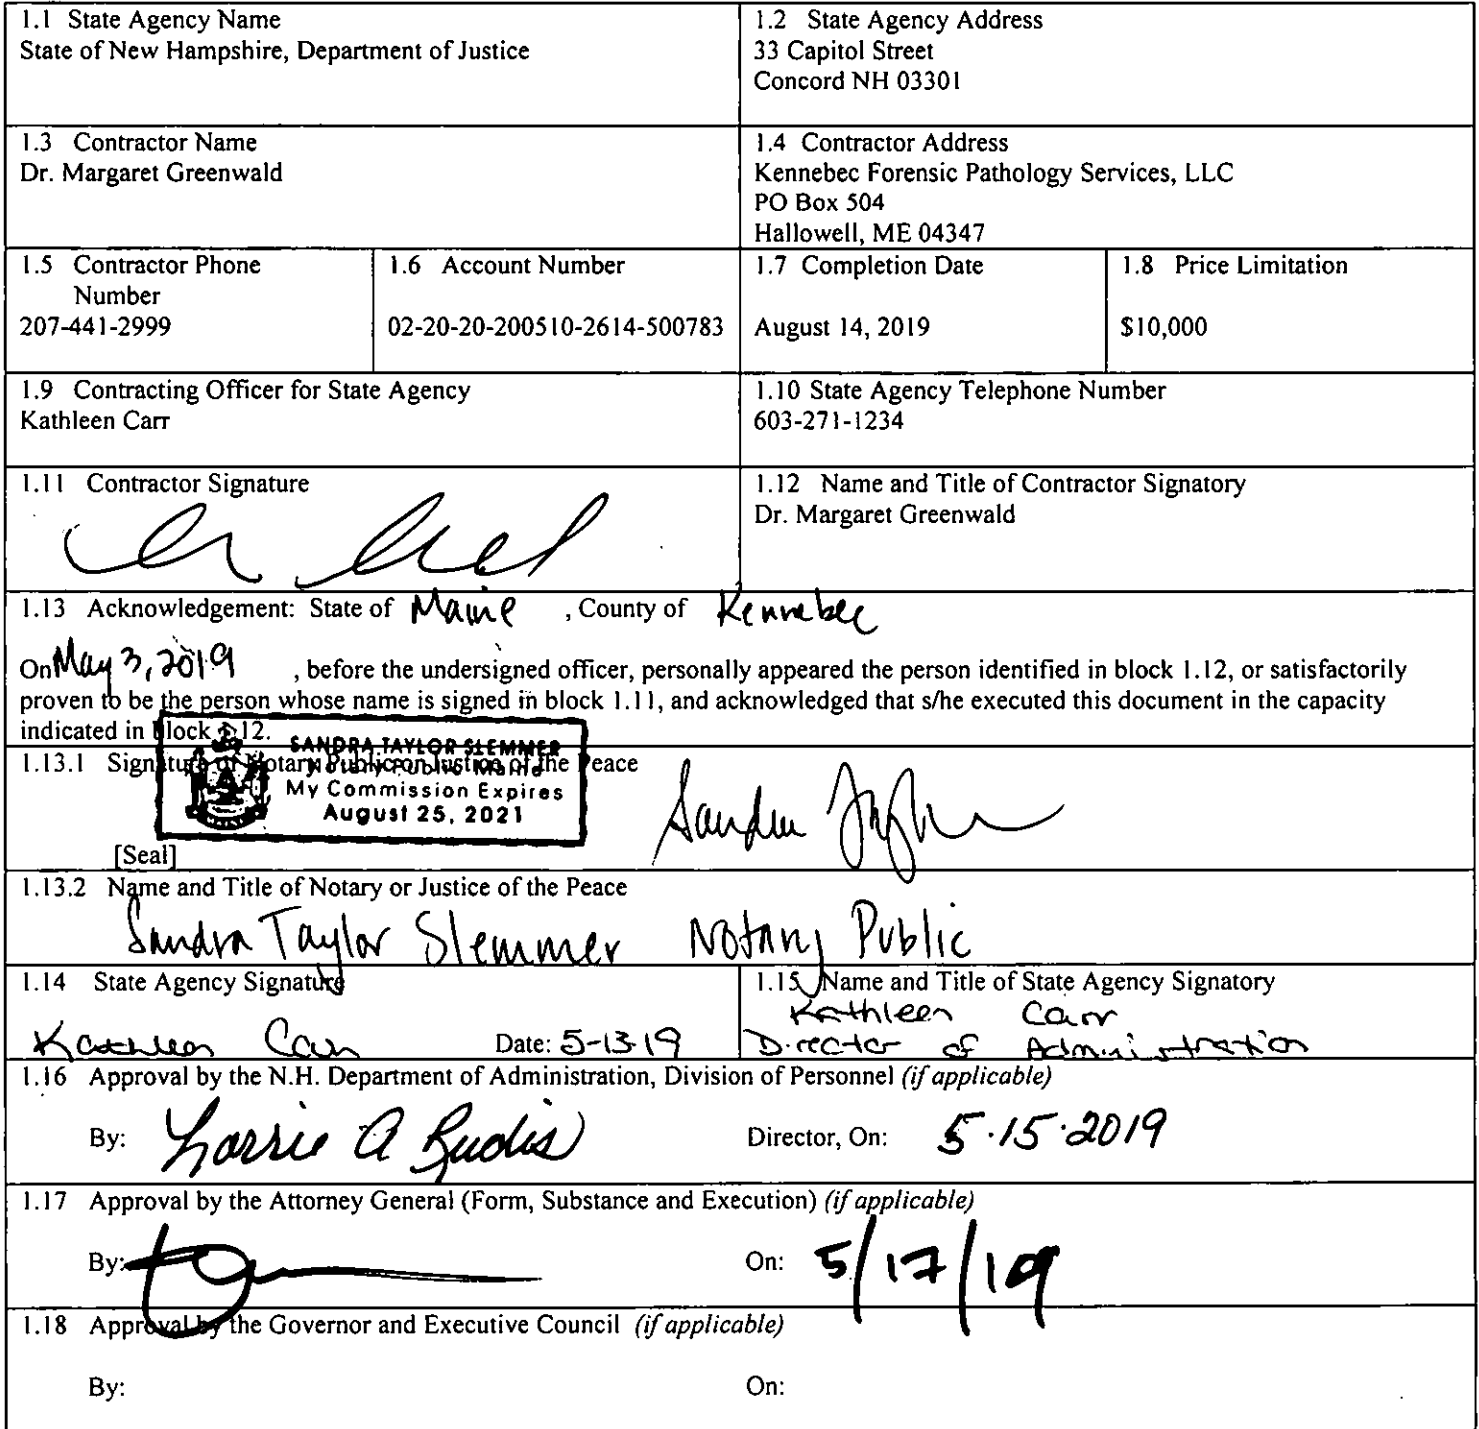 1.1 State Agency Name
State of New Hampshire, Department of Justice
1.2 State Agency Address
33 Capitol Street
Concord NH 03301
1.3 Contractor Name
Dr. Margaret Greenwald
1.4 Contractor Address
Kennebec Forensic Pathology Services, LLC
PO Box 504
Hallowell, ME 04347
1.5 Contractor Phone
Number
207-441-2999
1.6 Account Number
02-20-20-200510-2614-500783
1.7 Completion Date
August 14, 2019
1.8 Price Limitation
$10,000
1.9 Contracting Officer for State Agency
Kathleen Carr
1.10 State Agency Telephone Number
603-271-1234
1.11 Contractor Signature
1.12 Name and Title of Contractor Signatory
Dr. Margaret Greenwald
1.13 Acknowledgement: State of Maine , County of Kennebec
On May 3, 2019 , before the undersigned officer, personally appeared the person identified in block 1.12, or satisfactorily
proven to be the person whose name is signed in block 1.11, and acknowledged that s/he executed this document in the capacity
indicated in block 1.12.
SANDRA TAYLOR SLEMMER
Notary Public Maine
My Commission Expires
August 25, 2021
1.13.1 Signature of Notary Public or Justice of the Peace
Sandra Taylor
[Seal]
1.13.2 Name and Title of Notary or Justice of the Peace
Sandra Taylor Slemmer Notary Public
1.14 State Agency Signature
Kathleen Carr Date: 5-13-19
1.15 Name and Title of State Agency Signatory
Kathleen Carr
Director of Administration
1.16 Approval by the N.H. Department of Administration, Division of Personnel (if applicable)
By: Lorrie A Rudis Director, On: 5.15.2019
1.17 Approval by the Attorney General (Form, Substance and Execution) (if applicable)
By: On: 5/17/19
1.18 Approval by the Governor and Executive Council (if applicable)
By: On: